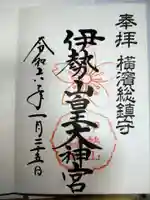 奉拝 横濱總鎮守
伊勢山皇大神宮
令和六年一月三十五日